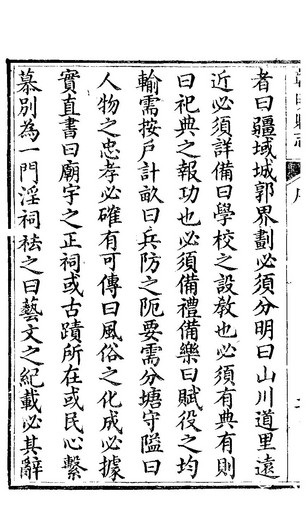 者曰疆域城郭界劃必須分明曰山川道里遠
近必須詳備曰學校之設教也必須有典有則
曰祀典之報功也必須備禮備樂曰賦役之均
輸需按戶計畝曰兵防之阨要需分塘守隘曰
人物之忠孝必確有可傳曰風俗之化成必據
實直書曰廟宇之正祠或古蹟所在或民心繫
慕別為一門淫祠袪之曰藝文之紀載必其辭